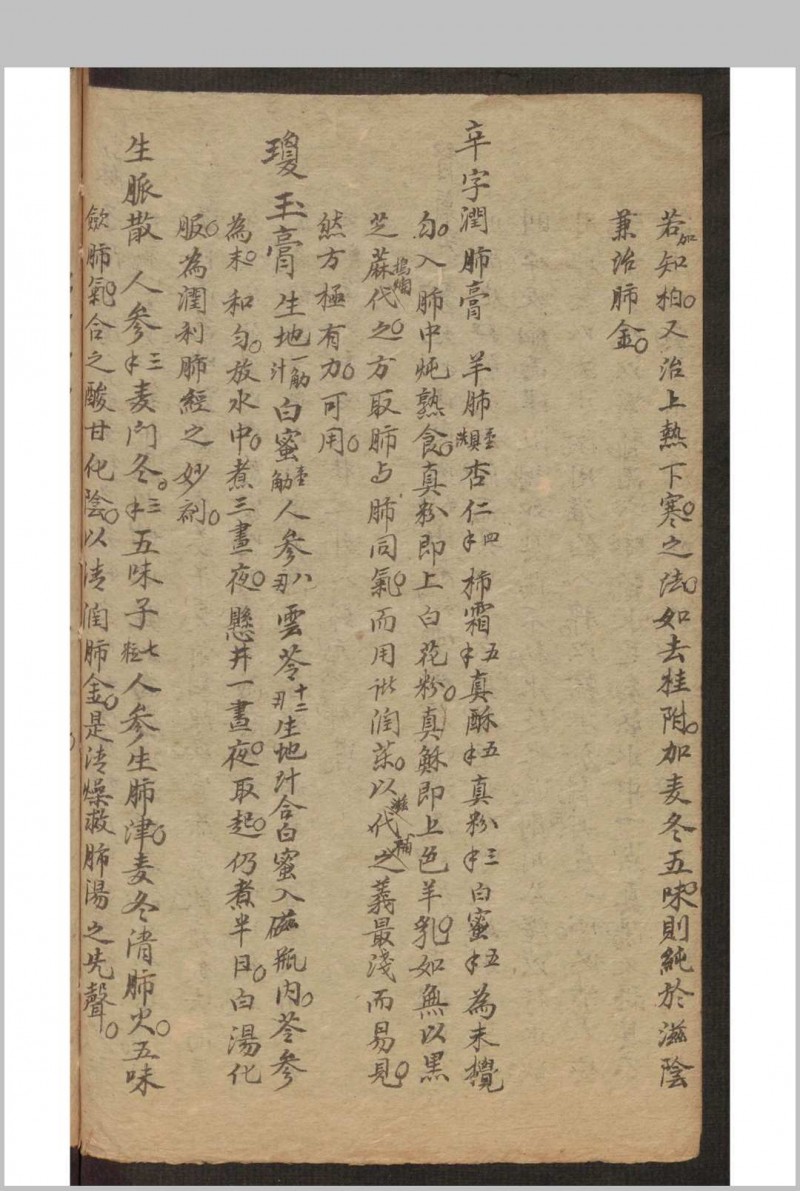 若加知柏又治上熱下寒之法如去桂附加麦冬五味則純於滋陰
兼治肺金
辛字潤肺膏 羊肺杏仁四柿霜五真酥五真粉三白蜜五為末攪
勻入肺中炖熟食真粉即上白花粉真穌即上色羊乳如無以黑
芝蔴搗爛代之方取肺与肺同氣而用諸潤藥以滋補代之義最淺而易見
然方極有力可用
瓊玉膏 生地汁一觔白蜜壹觔人參八雲苓十二生地汁合白蜜入磁瓶內苓參
為末和勻放水中煮三晝夜懸井一晝夜取起仍煮半日白湯化
服為潤利肺經之妙劑
生脈散 人參三麦门冬三五味子七粒人參生肺津麦冬清肺火五味
歛肺氣合之酸甘化陰以清潤肺金是清燥救肺湯之先聲